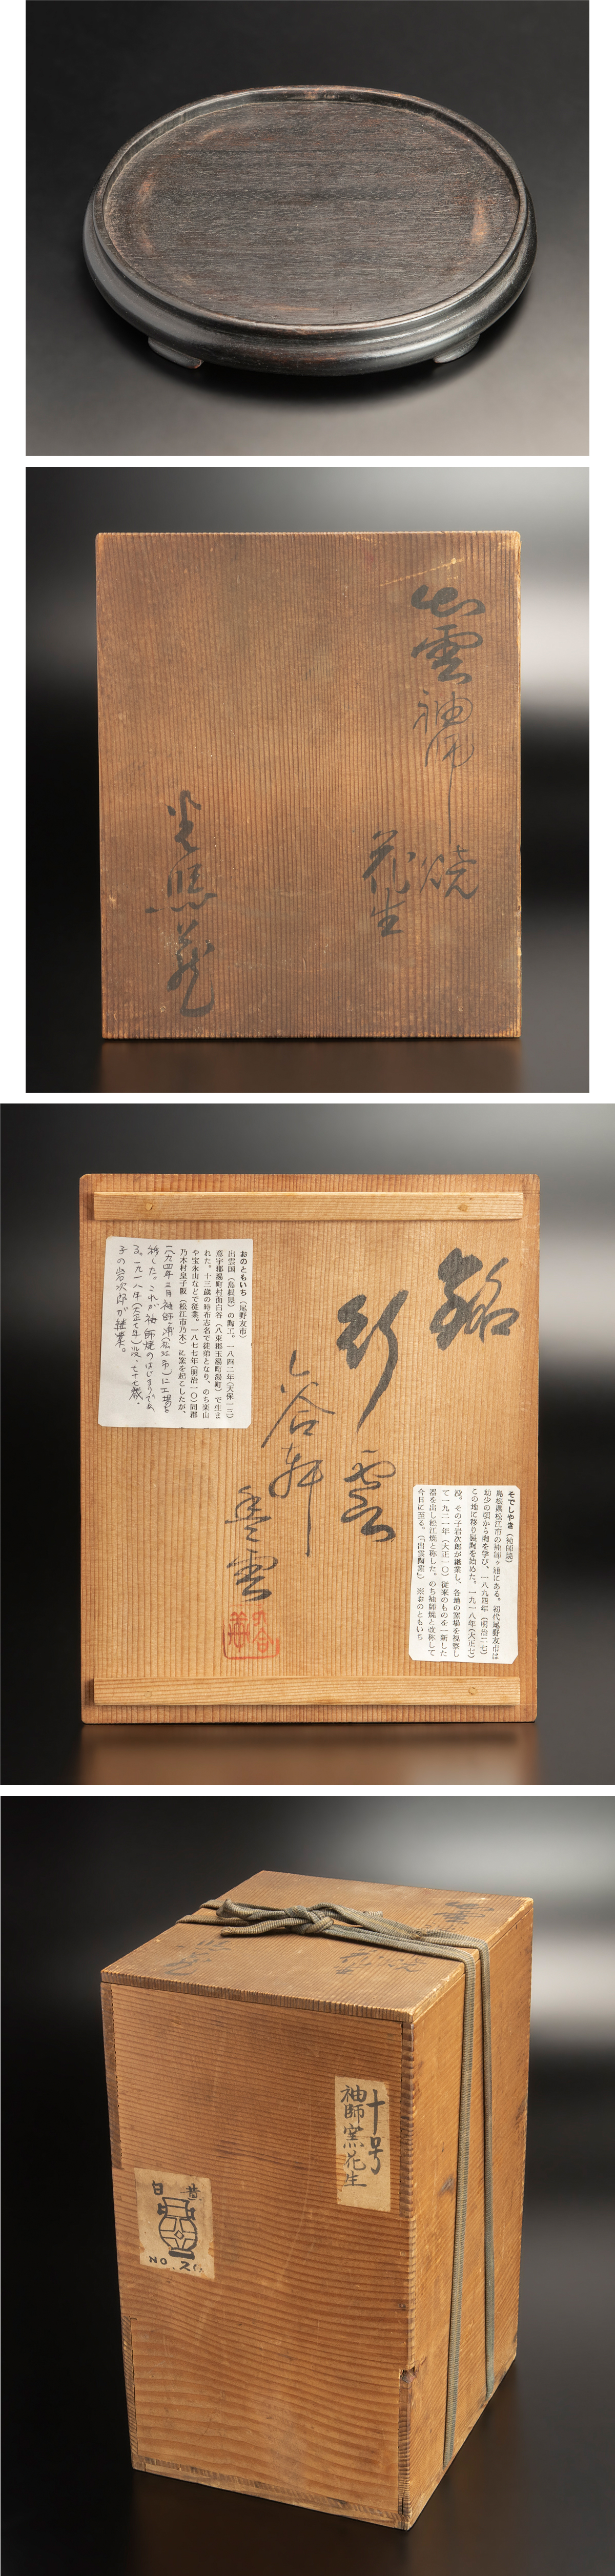 出雲
袖師
焼
花生
銘
彩雲
谷軒
おのともいち（尾野友市）
出雲国（島根県）の陶工。一八四二年（天保一三）
意宇郡湯町村面白谷（八束郡玉湯町湯町）で生ま
れた。十三歳の時布志名で徒弟となり、のち楽山
や宝永山などで従業。一八七七年（明治一〇）同郡
乃木村皇子阪（松江市乃木）に窯を起こしたが、
一八九四年二月袖師浦（松江市）に工場を
移した。これが袖師焼のはじまりであ
る。一九一八年（大正七年）没、七十七歳。
子の岩次郎が継業。
そでしやき（袖師焼）
島根県松江市の袖師ヶ浦にある。初代尾野友市は
幼少の頃から陶を学び、一八九四年（明治二七）
この地に移り製陶を始めた。一九一八年（大正七）
没。その子岩次郎が継業し、各地の窯場を視察し
て一九二一年（大正一〇）従来のものを一新した
器を出し松江焼と称した。のち袖師焼と改称して
今日に至る。（『出雲陶窯』）※おのともいち
十号
袖師窯花生
NO. 26